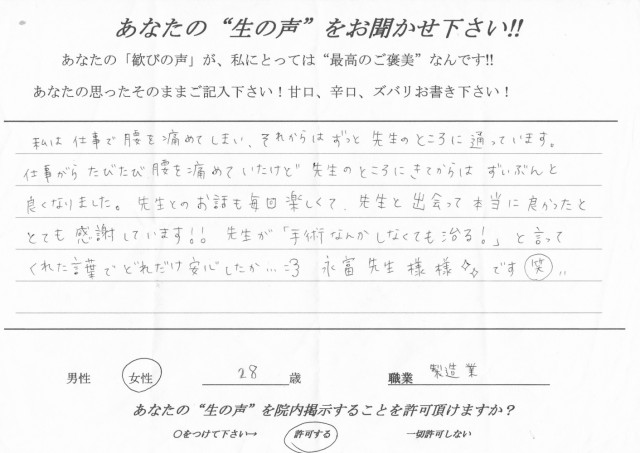 あなたの“生の声”をお聞かせ下さい!!
あなたの「歓びの声」が、私にとっては“最高のご褒美”なんです!!
あなたの思ったそのままご記入下さい！甘口、辛口、ズバリお書き下さい！
私は仕事で腰を痛めてしまい、それからはずっと先生のところに通っています。
仕事がらたびたび腰を痛めていたけど先生のところにきてからはずいぶんと
良くなりました。先生とのお話も毎回楽しくて、先生と出会って本当に良かったと
とても感謝しています!! 先生が「手術なんかしなくても治る！」と言って
くれた言葉でどれだけ安心したか…=3 永富先生様様です㊤笑..
男性 女性 28歳 職業 製造業
あなたの“生の声”を院内掲示することを許可頂けますか？
〇をつけて下さい→ 許可する 一切許可しない